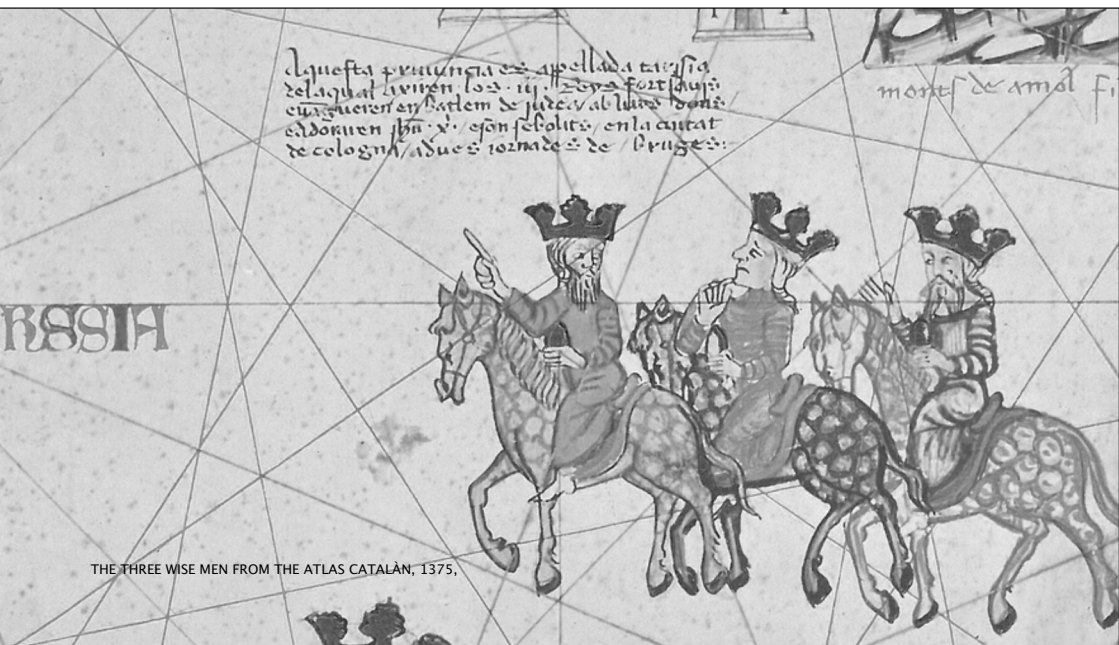 Aquesta prouincia es appellada tarssia
dela qual axiren los .iij. Reys fort sauis
e uengueren en batlem de judea ab lurs dons
e adoraren jhu .x. e son sebolits en la ciutat
de cologna a dues iornades de bruges:
monts de amol
RSSIA
THE THREE WISE MEN FROM THE ATLAS CATALÀN, 1375,